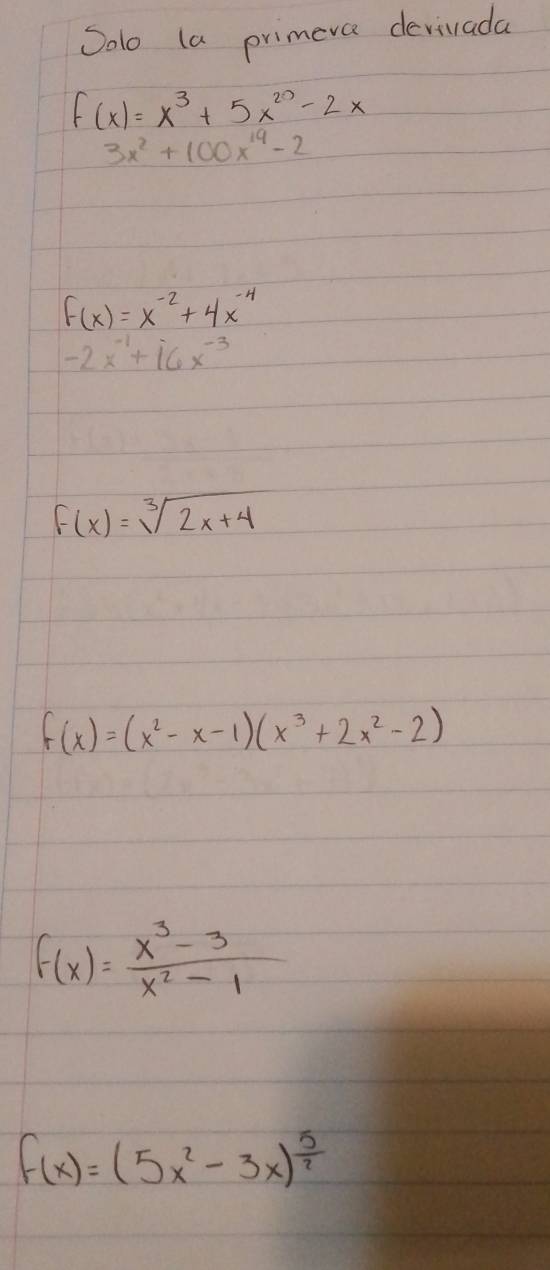 Solo la primera derivada
f(x) = x³ + 5x²⁰ - 2x
3x² + 100x¹⁹ - 2
f(x) = x⁻² + 4x⁻⁴
-2x⁻¹ + 16x⁻³
f(x) = ∛(2x+4)
f(x) = (x² - x - 1)(x³ + 2x² - 2)
f(x) = (x³ - 3)/(x² - 1)
f(x) = (5x² - 3x)^(5/2)